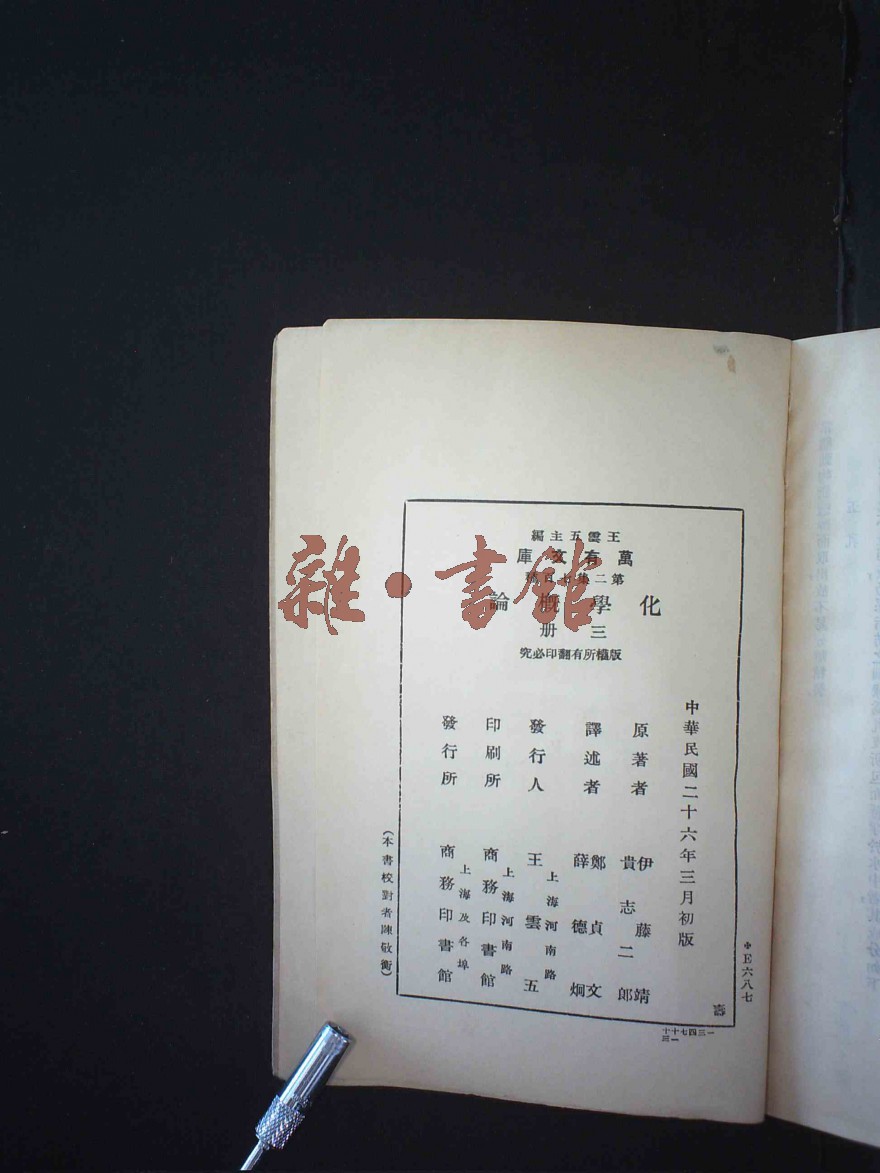 王雲五主編
萬有文庫
第二集七百種
化學概論
三册
版權所有翻印必究
中華民國二十六年三月初版
原著者 伊藤靖 貴志二郎
譯述者 鄭貞文 薛德炯
發行人 王雲五
上海河南路
印刷所 商務印書館
上海河南路
發行所 商務印書館
上海及各埠
(本書校對者陳敬衡)
*E六八七
雜·書館